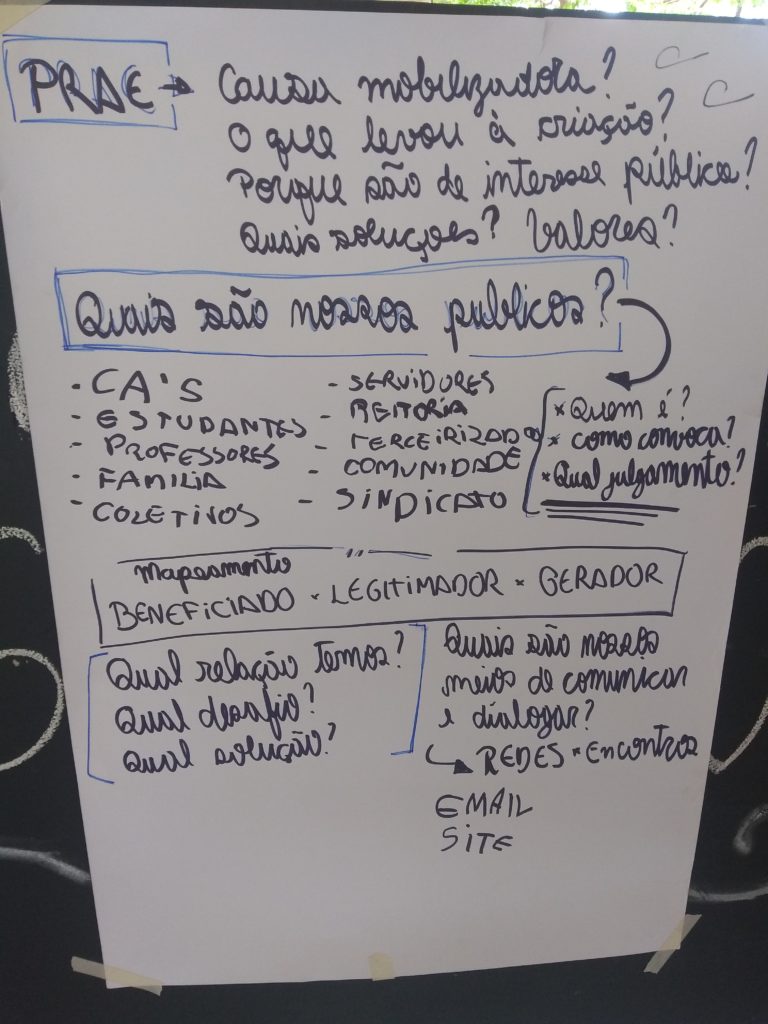 PRAE → Causa mobilizadora?
O que levou à criação?
Porque são de interesse público?
Quais soluções? Valores?
Quais são nossos publicos?
- CA'S
- ESTUDANTES
- PROFESSORES
- FAMILIA
- COLETIVOS
- SERVIDORES
- REITORIA
- TERCEIRIZADOS
- COMUNIDADE
- SINDICATO
* Quem é?
* como convoca?
* Qual julgamento?
Mapeamento
BENEFICIADO * LEGITIMADOR * GERADOR
Qual relação temos?
Qual desafio?
Qual solução?
Quais são nossos
meios de comunicar
e dialogar?
→ REDES * Encontros
EMAIL
SITE